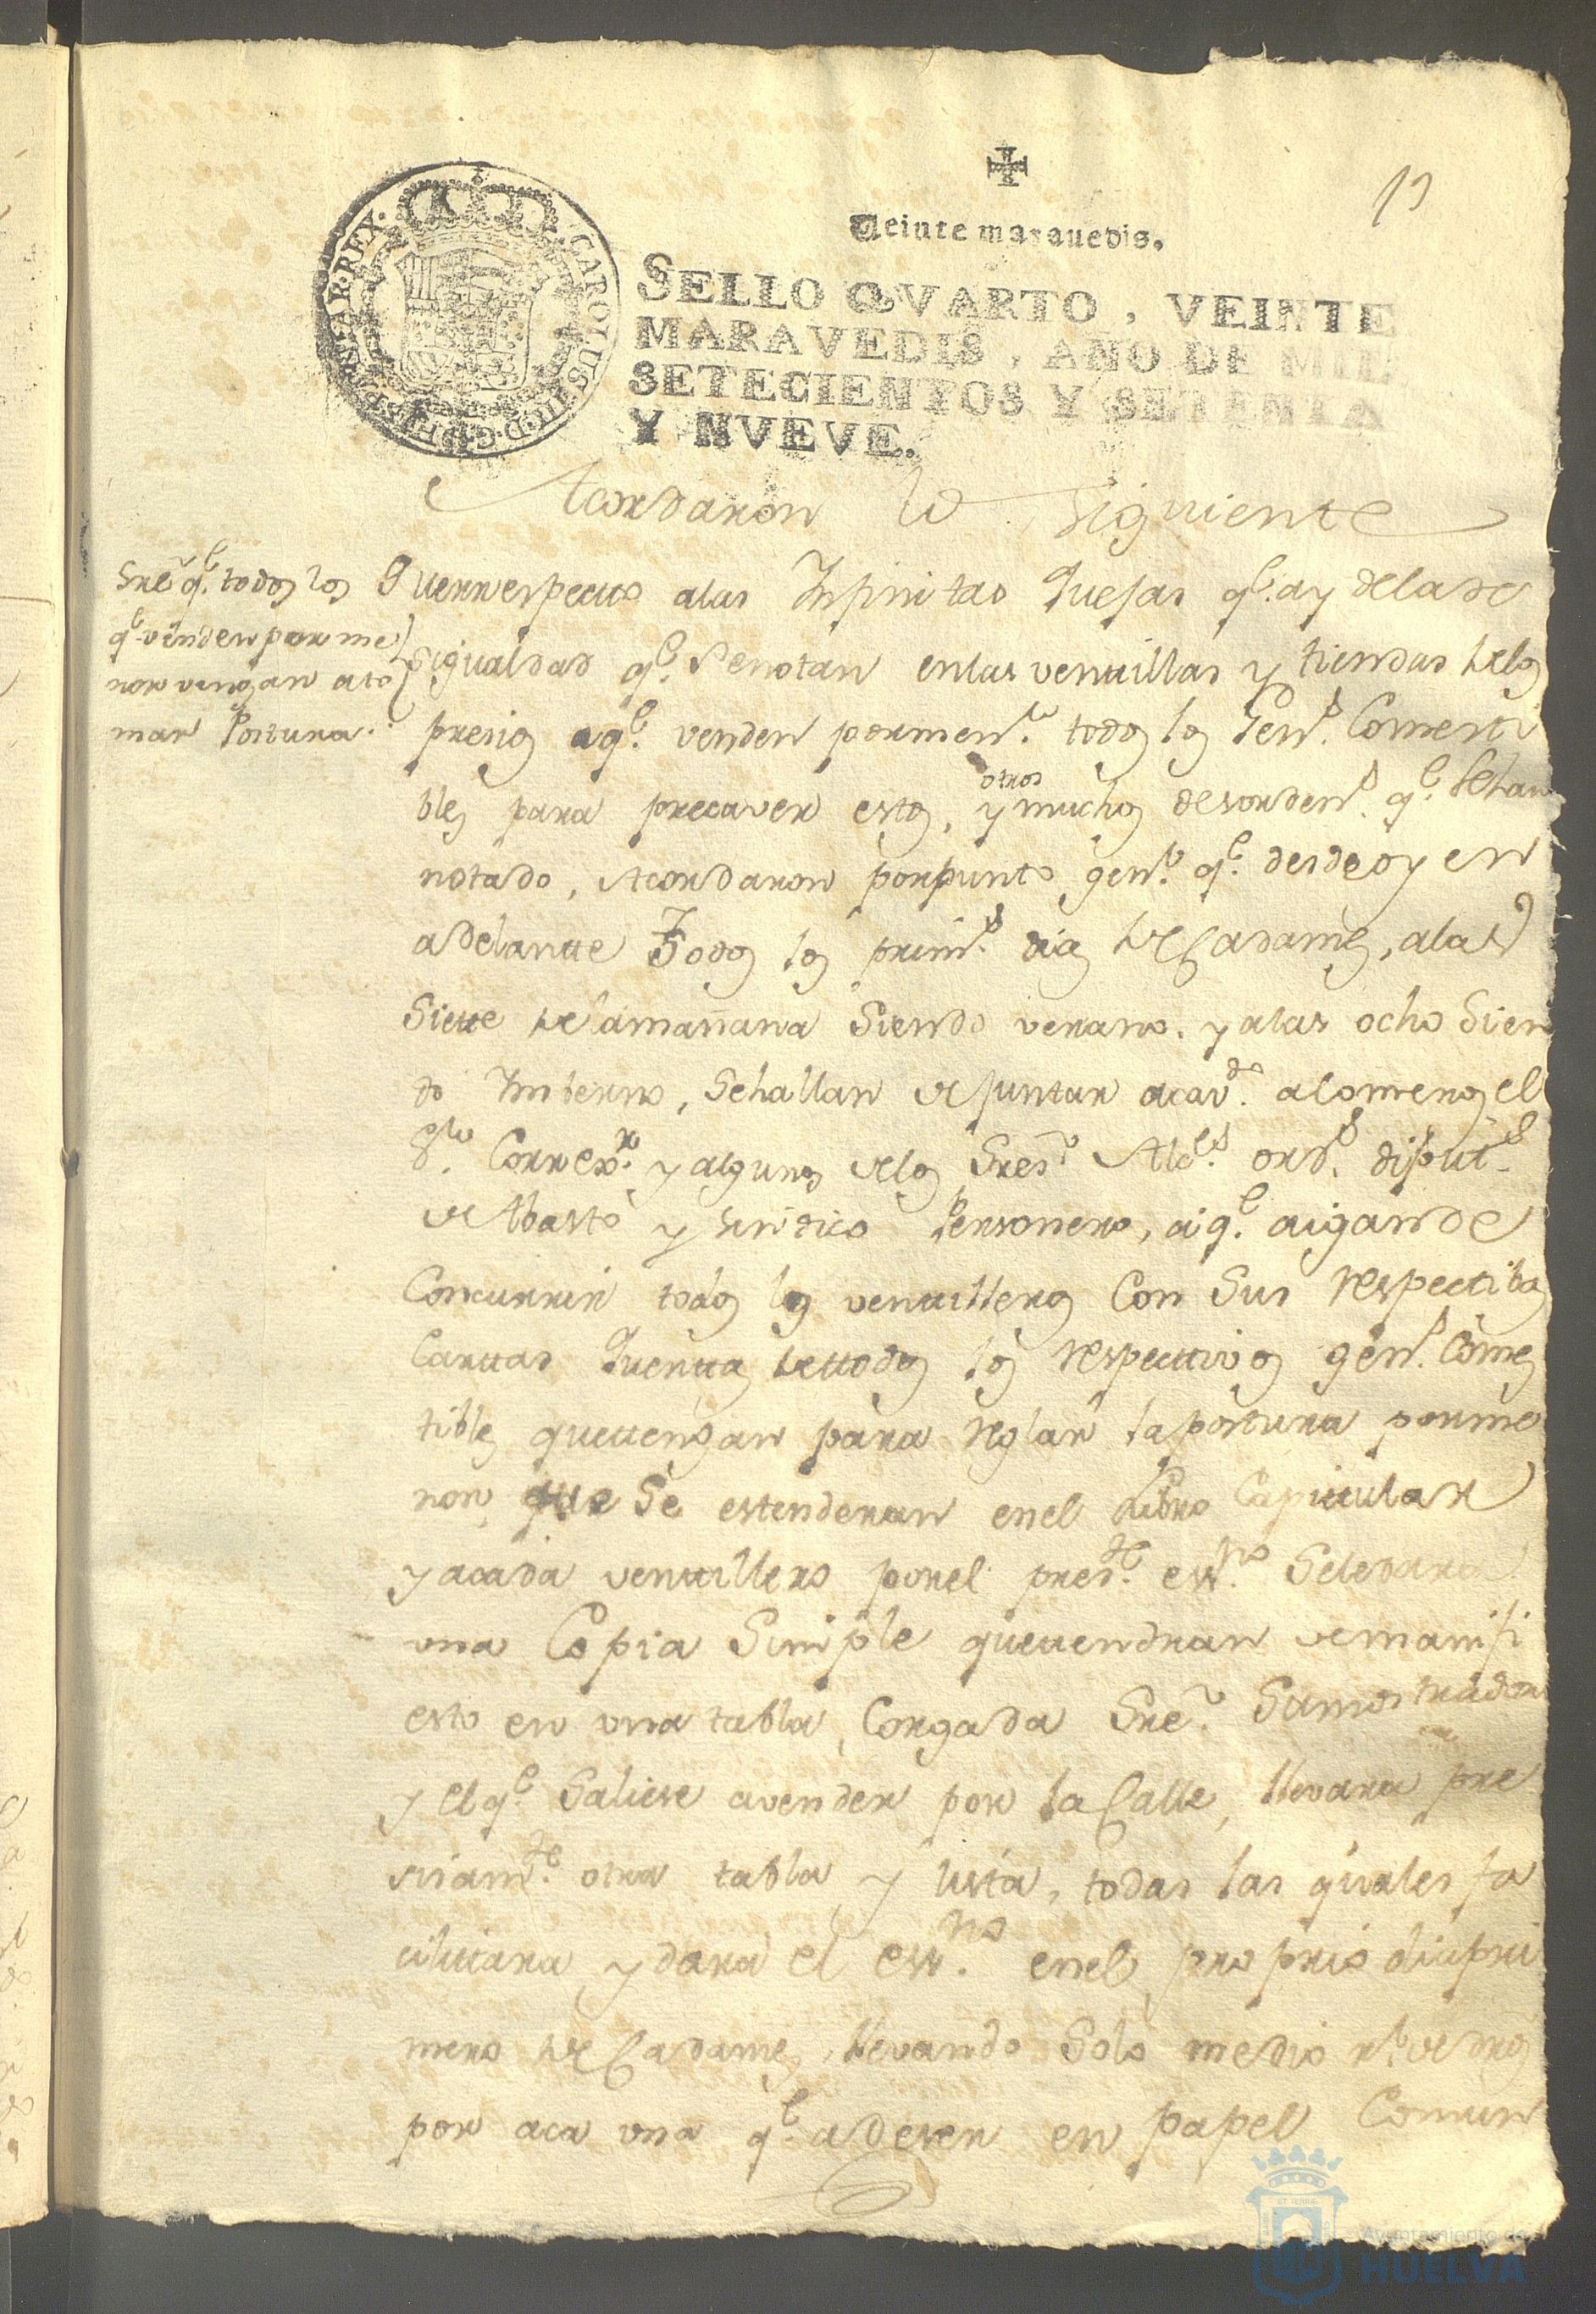 13
Veinte maravedis.
SELLO QVARTO, VEINTE
MARAVEDIS, AÑO DE MIL
SETECIENTOS Y SETENTA
Y NVEVE.
CAROLUS III D. G. HISPANIAR. REX.
Acordaron lo siguiente
Sre. q.e todos los
q.e venden por me
nor vengan a to
mar Postura.
Que respecto a las Infinitas Quejas q.e ay de la de
sigualdad q.e se notan en las ventillas y tiendas de los
presios a q.e venden por men.r todos los Gen.s Comesti
bles para precaver estos, y otros muchos desorden.s q.e se han
notado, Acordaron por punto gen.l q.e desde oy en
adelante Todos los prim.s dias de Cada mes, a las
Siete de la mañana Siendo verano, y alas ocho Sien
do Imbierno, Se hallan de juntar a cav.do a lo menos el
S.or Correx.or y algunos de los Sres. Alc.es ord.s diput.s
de Abasto y Sindico Personero, a q.e aigan de
Concurrir todos los ventilleros Con Sus respectibas
Cartas Quentas de todos los respectivos gen.s Comes
tibles que tengan para reglar la postura por me
nor, que Se estenderan en el Libro Capitular
y a cada ventillero por el pres.te ess.no Se le dara
una Copia Simple que tendran de manifi
esto en una tabla, Corgada Sre. Su mostrador
y el q.e Saliese a vender por la Calle, llevara pre
sisam.te otra tabla y lista, todas las quales fa
cilitara y dara el ess.no en el proprio dia pri
mero de Cada mes, llevando Solo medio r.l de dros
por aca una q.e a de ser en papel Comun
Ayuntamiento de
HUELVA